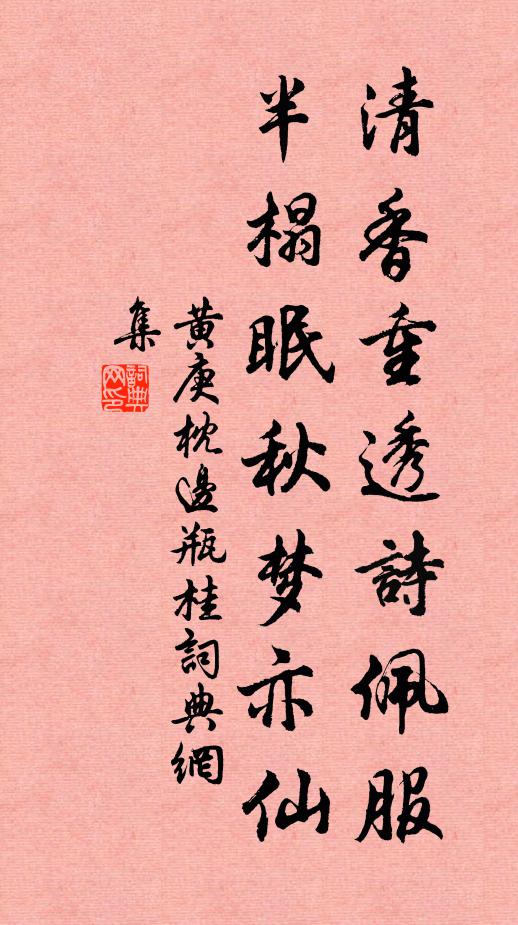 清香重透詩佩服
半榻眠秋梦亦仙
黄庚枕邊瓶桂詞典網
集
詞典
网印